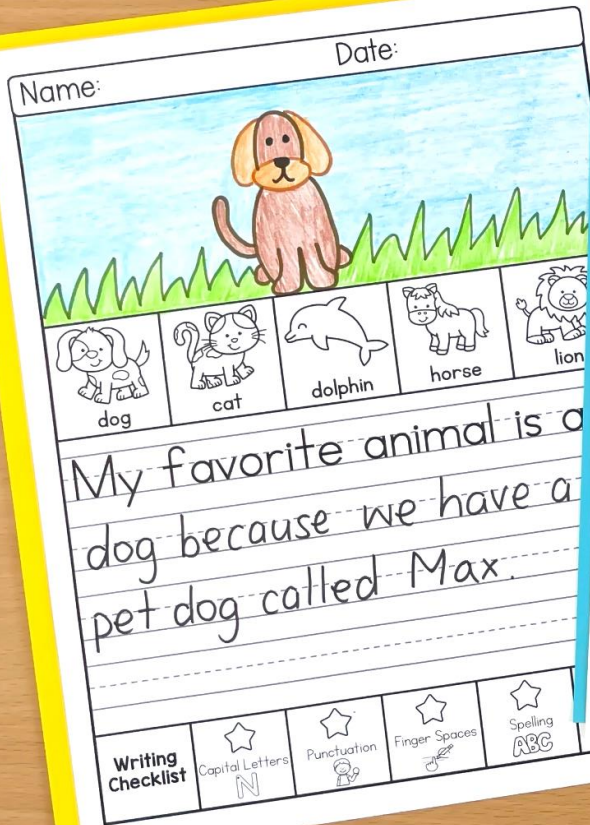 Name: Date:
dog cat dolphin horse lion
My favorite animal is a
dog because we have a
pet dog called Max.
Writing Checklist
Capital Letters
N
Punctuation
Finger Spaces
Spelling
ABC